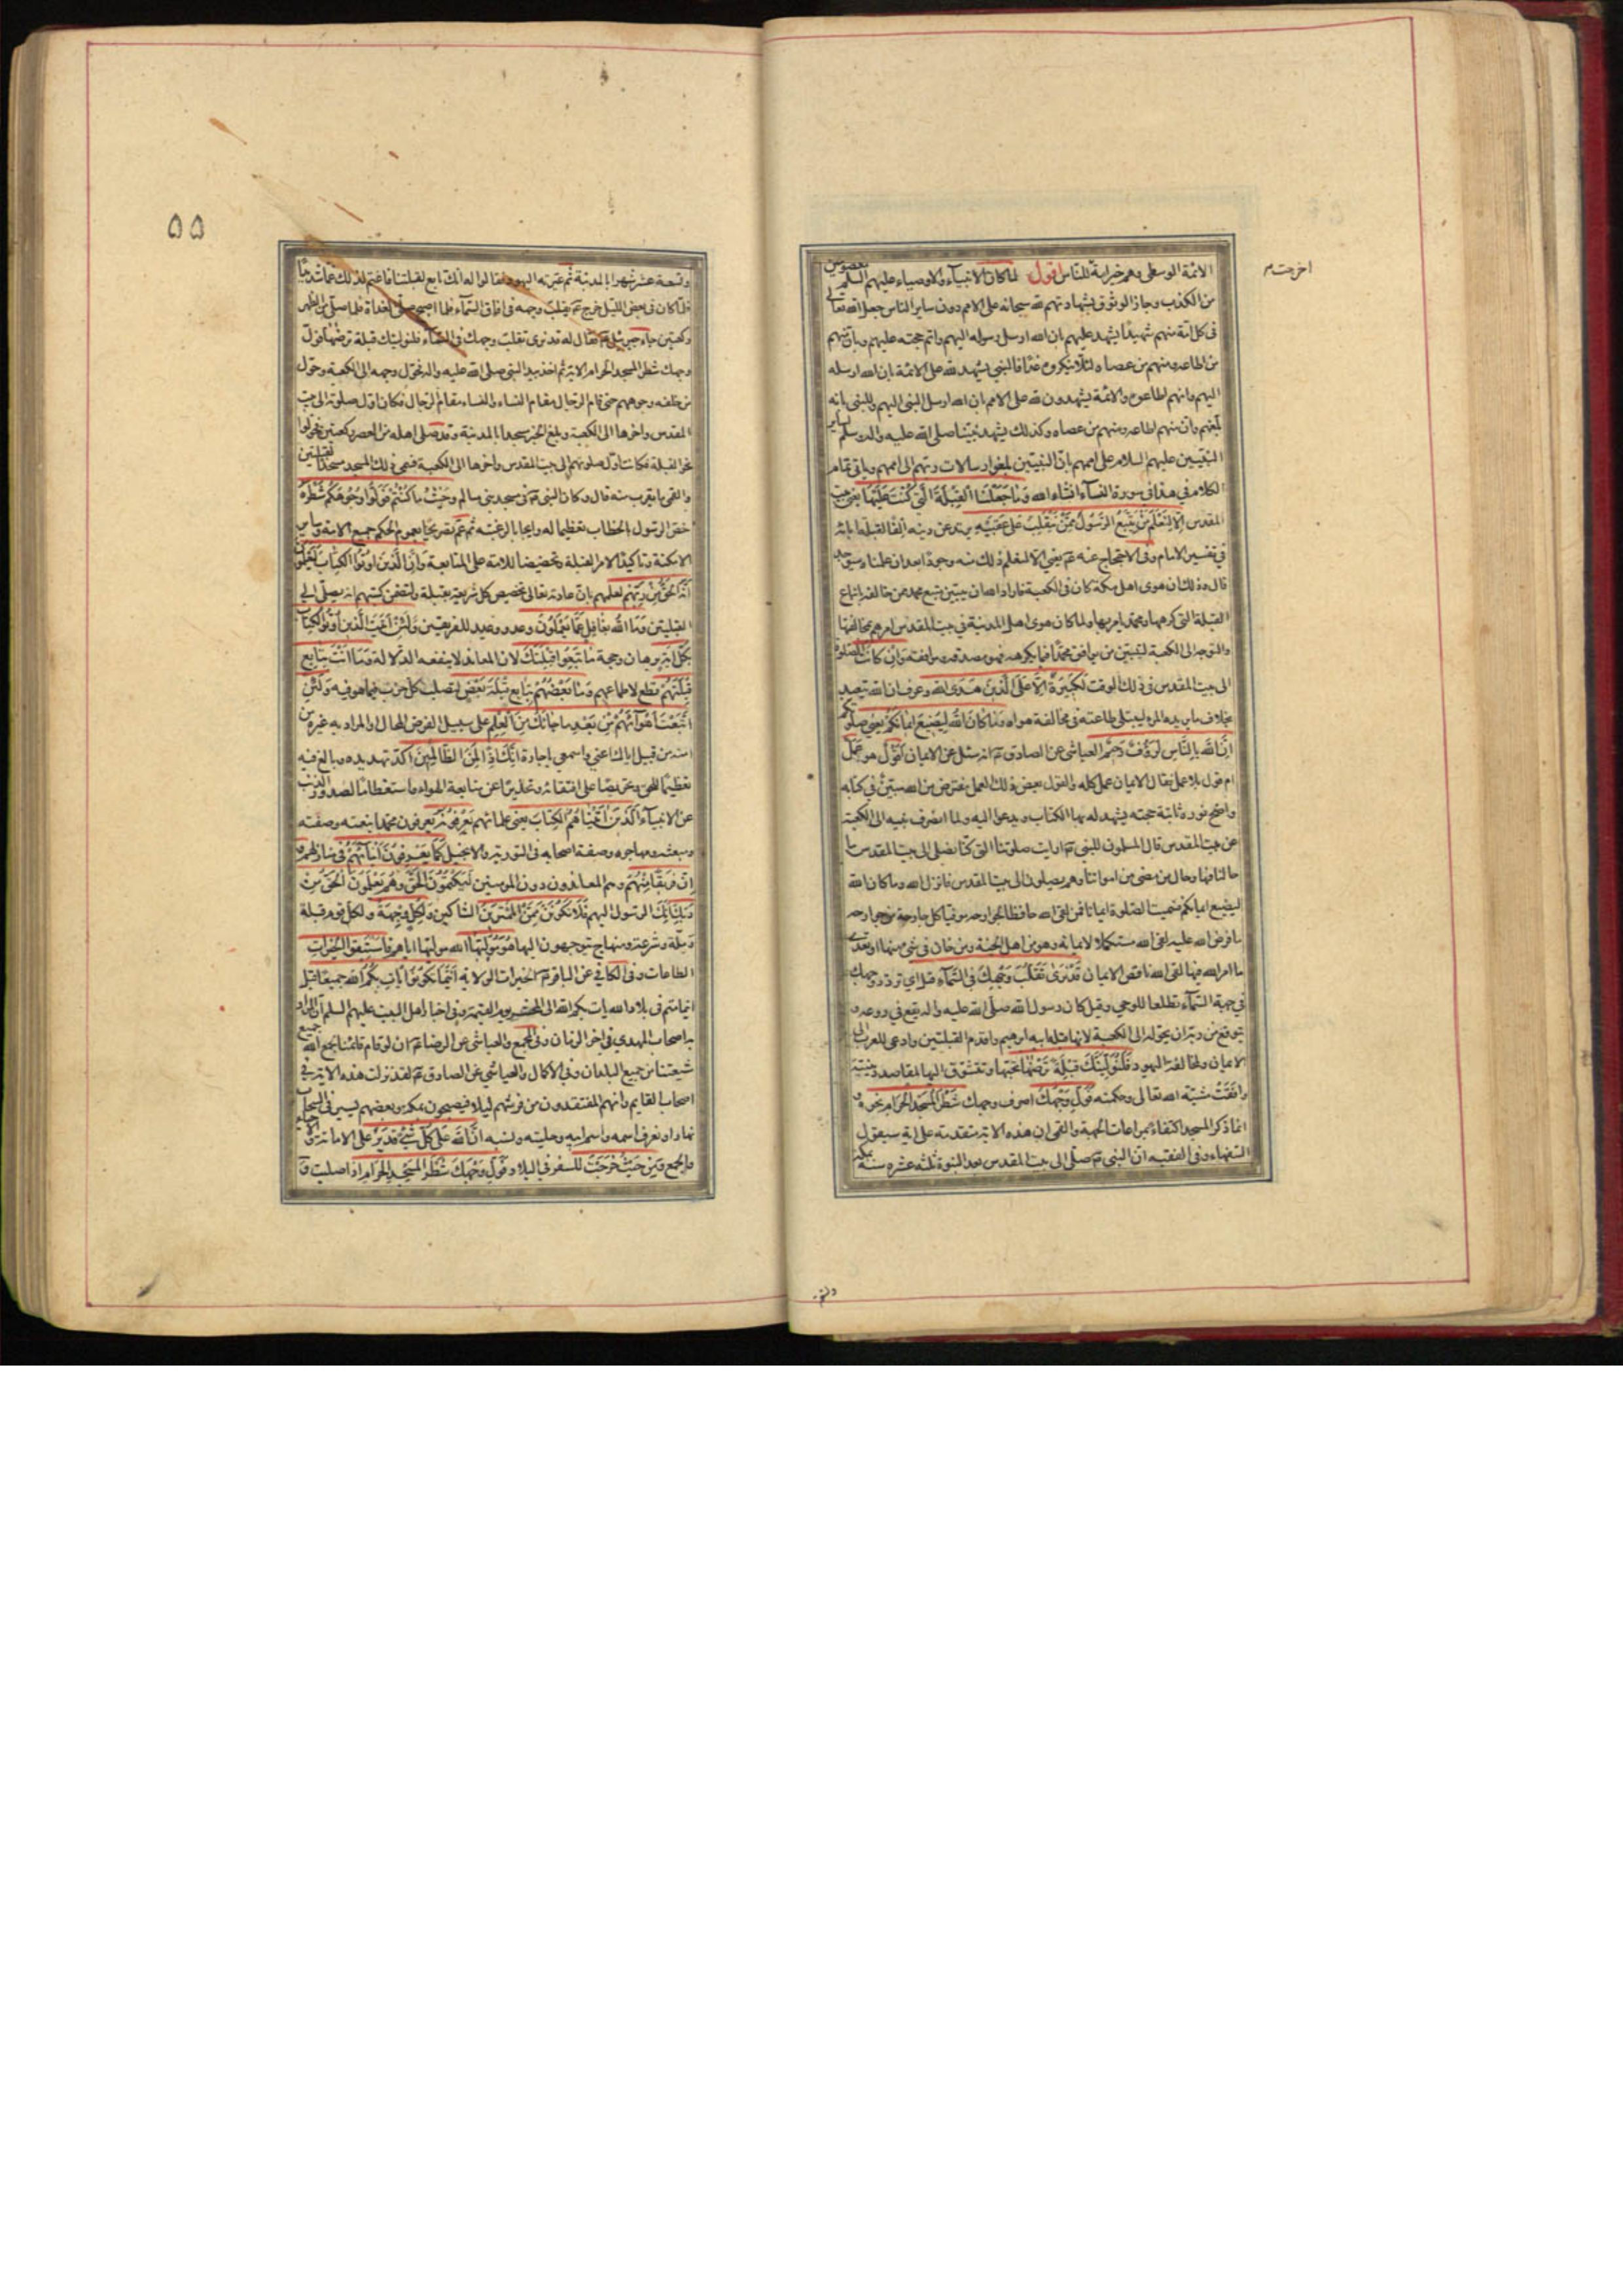 الائمة الوسطى وهم خير امة للناس اقول لما كان الانبياء والاوصياء عليهم السلم معصومين
اخرجت م
من الكذب وجاز الوثوق بشهادتهم لله سبحانه على الامم دون ساير الناس جعل الله تعالى
فى كل امة منهم شهيدًا يشهد عليهم بان الله ارسل رسوله اليهم واتم حجته عليهم وبان منهم
من اطاعه ومنهم من عصاه لئلا ينكروه غدًا فالنبي يشهد لله على الائمة بان الله ارسله
اليهم وانهم اطاعوه والائمة يشهدون لله على الامم بان الله ارسل النبى اليهم وللنبى بانه
بلغهم وان منهم اطاعه ومنهم من عصاه وكذلك يشهد نبينا صلى الله عليه واله لساير
النبيين عليهم السلام على اممهم بان النبيين بلغوا رسالات ربهم الى اممهم وياتى تمام
الكلام في هذا في سورة النساء انشاء الله وَمَا جَعَلْنَا القِبْلَةَ الَّتى كُنْتَ عَلَيْهَا يعنى بيت
المقدس اِلَّا لِنَعْلَمَ مَنْ يَتَّبِعُ الرَّسُولَ مِمَّنْ يَنْقَلِبُ عَلى عَقِبَيْهِ يرتد عن دينه الفًا لقبلة ابائه
في تفسير الامام وفى الاحتجاج عنه عم يعني الا لنعلم ذلك منه وجودًا بعد ان علمناه سيوجد
قال وذلك ان هوى اهل مكة كان فى الكعبة فاراد الله ان يبين متبع محمد من مخالفه باتباع
القبلة التى كرهها ومحمد يامر بها ولما كان هوى اهل المدينة في بيت المقدس امرهم بمخالفتها
والتوجه الى الكعبة ليتبين من يوافق محمدًا فيما يكرهه فهو مصدقه وموافقه وَاِنْ كَانَتْ الصلوة
الى بيت المقدس فى ذلك الوقت لَكَبِيرَةً اِلَّا عَلَى الَّذِينَ هَدَى الله وعرف ان الله يتعبد
بخلاف ما يريده المرء ليبتلى طاعته فى مخالفة هواه وَمَا كَانَ اللهُ لِيُضِيعَ اِيمَانَكُمْ يعني صلوتكم
اِنَّ اللهَ بِالنَّاسِ لَرَؤُفٌ رَحِيْمٌ العياشى عن الصادق عم انه سئل عن الايمان اَقَول هو وعمل
ام قول بلا عمل فقال الايمان عمل كله والقول بعض ذلك العمل مفترض من الله مبين في كتابه
واضح نوره ثابتة حجته يشهد له بها الكتاب ويدعو اليه ولما انصرف نبيه الى الكعبة
عن بيت المقدس قال المسلمون للنبى عم ارايت صلوتنا التى كنا نصلى الى بيت المقدس ما
حالنا فيها وحال من مضى من امواتنا وهم يصلون الى بيت المقدس فانزل الله وما كان الله
ليضيع ايمانكم فسميت الصلوة ايمانا فمن لقى الله حافظا لجوارحه موفيا كل جارحة من جوارحه
ما فرض الله عليه لقى الله مستكملا لايمانه وهو من اهل الجنة ومن خان في شئ منها او تعدى
ما امر الله فيها لقى الله ناقص الايمان قَدْ نَرَى تَقَلُّبَ وَجْهِكَ فى السَّمَآءِ قيل اي تردد وجهك
في جهة السمآء تطلعا للوحي وقيل كان رسول الله صلى الله عليه واله يقع في روعه و
يتوقع من ربه ان يحوله الى الكعبة لانها قبلة ابيه ابرهيم واقدم القبلتين وادعى للعرب الى
الايمان ولمخالفة اليهود فَلَنُوَلِّيَنَّكَ قِبْلَةً تَرْضيهَا تحبها وتتشوق اليها لمقاصد دينية
وافقت مشية الله تعالى وحكمته فَوَلِّ وَجْهَكَ اصرف وجهك شَطْرَ الْمَسْجِدِ الْحَرَامِ نحوه و
انما ذكر المسجد اكتفاء بمراعات الجهة والقمى ان هذه الاية متقدمة على اية سيقول
السفهاء وفى الفقيه ان النبى عم صلى الى بيت المقدس بعد النبوة ثلثه عشره سنة بمكة
وتسعة
٥٥
وتسعة عشر شهرا بالمدينة ثم عيرته اليهود فقالوا له انك تابع لقبلتنا فاغتم لذلك غما شديدًا
فلما كان فى بعض الليل خرج عم يقلب وجهه فى افاق السمآء فلما اصبح صلى الغداة فلما صلى من الظهر
ركعتين جاء جبرئيل عم فقال له قد نرى تقلب وجهك في السماء فلنولينك قبلة ترضيها فول
وجهك شطر المسجد الحرام الاية ثم اخذ بيد النبى صلى الله عليه واله فحول وجهه الى الكعبة وحول
من خلفه وجوههم حتى قام الرجال مقام النساء والنساء مقام الرجال فكان اول صلوته الى بيت
المقدس واخرها الى الكعبة وبلغ الخبر مسجدا بالمدينة وقد صلى اهله من العصر ركعتين فحولوا
نحو القبلة فكانت اول صلوتهم الى بيت المقدس واخرها الى الكعبة فسمى ذلك المسجد مسجد القبلتين
والقمى ما يقرب منه قال وكان النبى عم فى مسجد بنى سالم وَحَيْثُ مَا كُنْتُمْ فَوَلُّوا وُجُوهَكُمْ شَطْرَهُ
خص الرسول بالخطاب تعظيما له وايجابا لرغبته ثم عمّم تصريحًا بعموم الحكم جميع الامة وساير
الامكنة وتاكيدًا لامر القبلة وتحضيضا للامة على المتابعة وَاِنَّ الَّذِينَ اوتُوا الكِتَابَ لَيَعْلَمُونَ
اَنَّهُ الحَقُّ مِنْ رَبِّهِمْ لعلمهم بان عادته تعالى تخصيص كل شريعة بقبلة ولتضمن كتبهم انه يصلى الى
القبلتين وَمَا اللهُ بِغَافِلٍ عَمَّا تَعْمَلُونَ وعد ووعيد للفريقين وَلَئِنْ اَتَيْتَ الَّذِينَ اُوتُوا الْكِتَابَ
بِكُلِّ ايَةٍ برهان وحجة مَا تَبِعُوا قِبْلَتَكَ لان المعاند لا ينفعه الدلالة وَمَا اَنْتَ بِتَابِعٍ
قِبْلَتَهُمْ قطع لاطماعهم وَمَا بَعْضُهُمْ بِتَابِعٍ قِبْلَةَ بَعْضٍ لتصلب كل حزب فيما هو فيه وَلَئِنِ
اتَّبَعْتَ اَهْوَآئَهُمْ مِنْ بَعْدِ مَا جَائَكَ مِنَ الْعِلْمِ على سبيل الفرض المحال او المراد به غيره من
امته من قبيل اياك اعني واسمعي يا جارة اِنَّكَ اِذًا لَمِنَ الظَّالِمِينَ اكد تهديده وبالغ فيه
تعظيمًا للحق وتحريصًا على اقتفائه وتحذيرًا عن متابعة الهوى واستفظاعًا لصدور الذنب
عن الانبياء اَلَّذينَ اتَيْنَاهُمُ الكِتَابَ يعنى علمائهم يَعْرِفُونَهُ يعرفون محمدا بنعته وصفته
ومبعثه ومهاجره وصفة اصحابه فى التورية والانجيل كَمَا يَعْرِفُونَ اَبْنَآئَهُمْ فى منازلهم و
اِنَّ فَرِيقًا مِنْهُمْ وهم المعاندون دون المؤمنين لَيَكْتُمُونَ الْحَقَّ وَهُمْ يَعْلَمُونَ اَلْحَقُّ مِنْ
رَبِّكَ انك الرسول اليهم فَلَا تَكُونَنَّ مِنَ الْمُمْتَرِينَ الشاكين وَلِكُلٍّ وِجْهَةٌ ولكل قوم قبلة
وملة وشرعة ومنهاج يتوجهون اليها هُوَ مُوَلِّيهَا الله موليها اياهم فَاسْتَبِقُوا الْخَيْرَاتِ
الطاعات وفى الكافي عن الباقر عم الخيرات الولاية اَيْنَمَا تَكُونُوا يَأْتِ بِكُمُ اللهُ جَمِيعًا قيل
اينما متم فى بلاد الله يات بكم الله الى المحشر يوم القيمة وفى اخبار اهل البيت عليهم السلم ان المراد
به اصحاب المهدي فى اخر الزمان وفى المجمع والعياشى عن الرضا عم ان لو قام قائمنا يجمع الله جميع
شيعتنا من جميع البلدان وفى الاكمال والعياشي عن الصادق عم لقد نزلت هذه الاية في
اصحاب القايم وانهم المفتقدون من فرشهم ليلا فيصبحون بمكة وبعضهم يسير فى السحاب
نهارا يعرف اسمه واسم ابيه وحليته ونسبه اِنَّ اللهَ عَلَى كُلِّ شَئٍ قَدِيرٌ على الاماتة و الاحياء
والجمع وَمِنْ حَيْثُ خَرَجْتَ للسفر في البلاد فَوَلِّ وَجْهَكَ شَطْرَ الْمَسْجِدِ الْحَرَامِ اذا صليت وَ